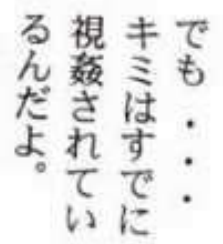 でも・・・
キミはすでに
視姦されてい
るんだよ。